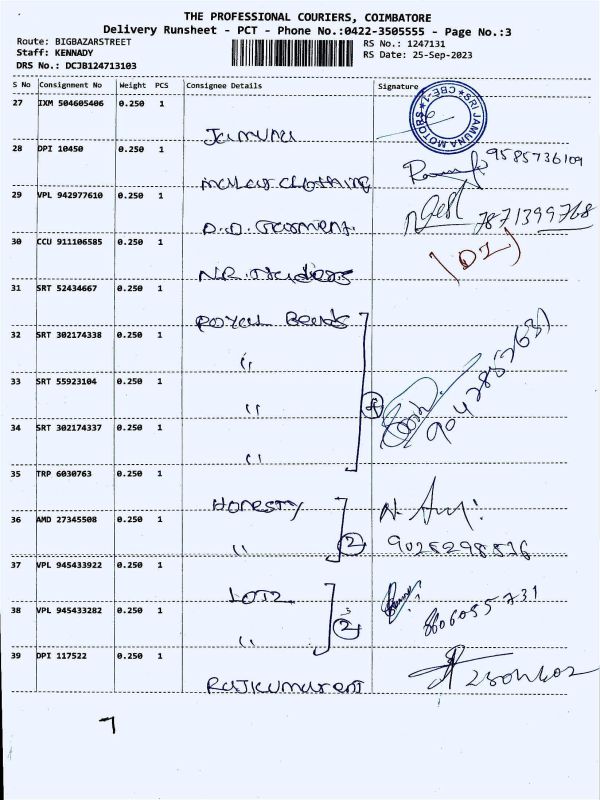 THE PROFESSIONAL COURIERS, COIMBATORE
Delivery Runsheet - PCT - Phone No.:0422-3505555 - Page No.:3
Route: BIGBAZARSTREET
Staff: KENNADY
DRS No.: DCJB124713103
RS No.: 1247131
RS Date: 25-Sep-2023
S No Consignment No Weight PCS Consignee Details Signature
27 IXM 504605406 0.250 1
SRI JAMUNA MOTORS * CBE-1 *
Jamuna
28 DPI 10450 0.250 1
9585736109
malar clothing
29 VPL 942977610 0.250 1
7871399768
D.D. Garment.
30 CCU 911106585 0.250 1
(D2)
N.R. Traders
31 SRT 52434667 0.250 1
Royal Beads
32 SRT 302174338 0.250 1
"
33 SRT 55923104 0.250 1
" 4
34 SRT 302174337 0.250 1
"
35 TRP 6030763 0.250 1
Honesty
36 AMD 27345508 0.250 1
" 2
37 VPL 945433922 0.250 1
38 VPL 945433282 0.250 1
" 2
8606055731
39 DPI 117522 0.250 1
7